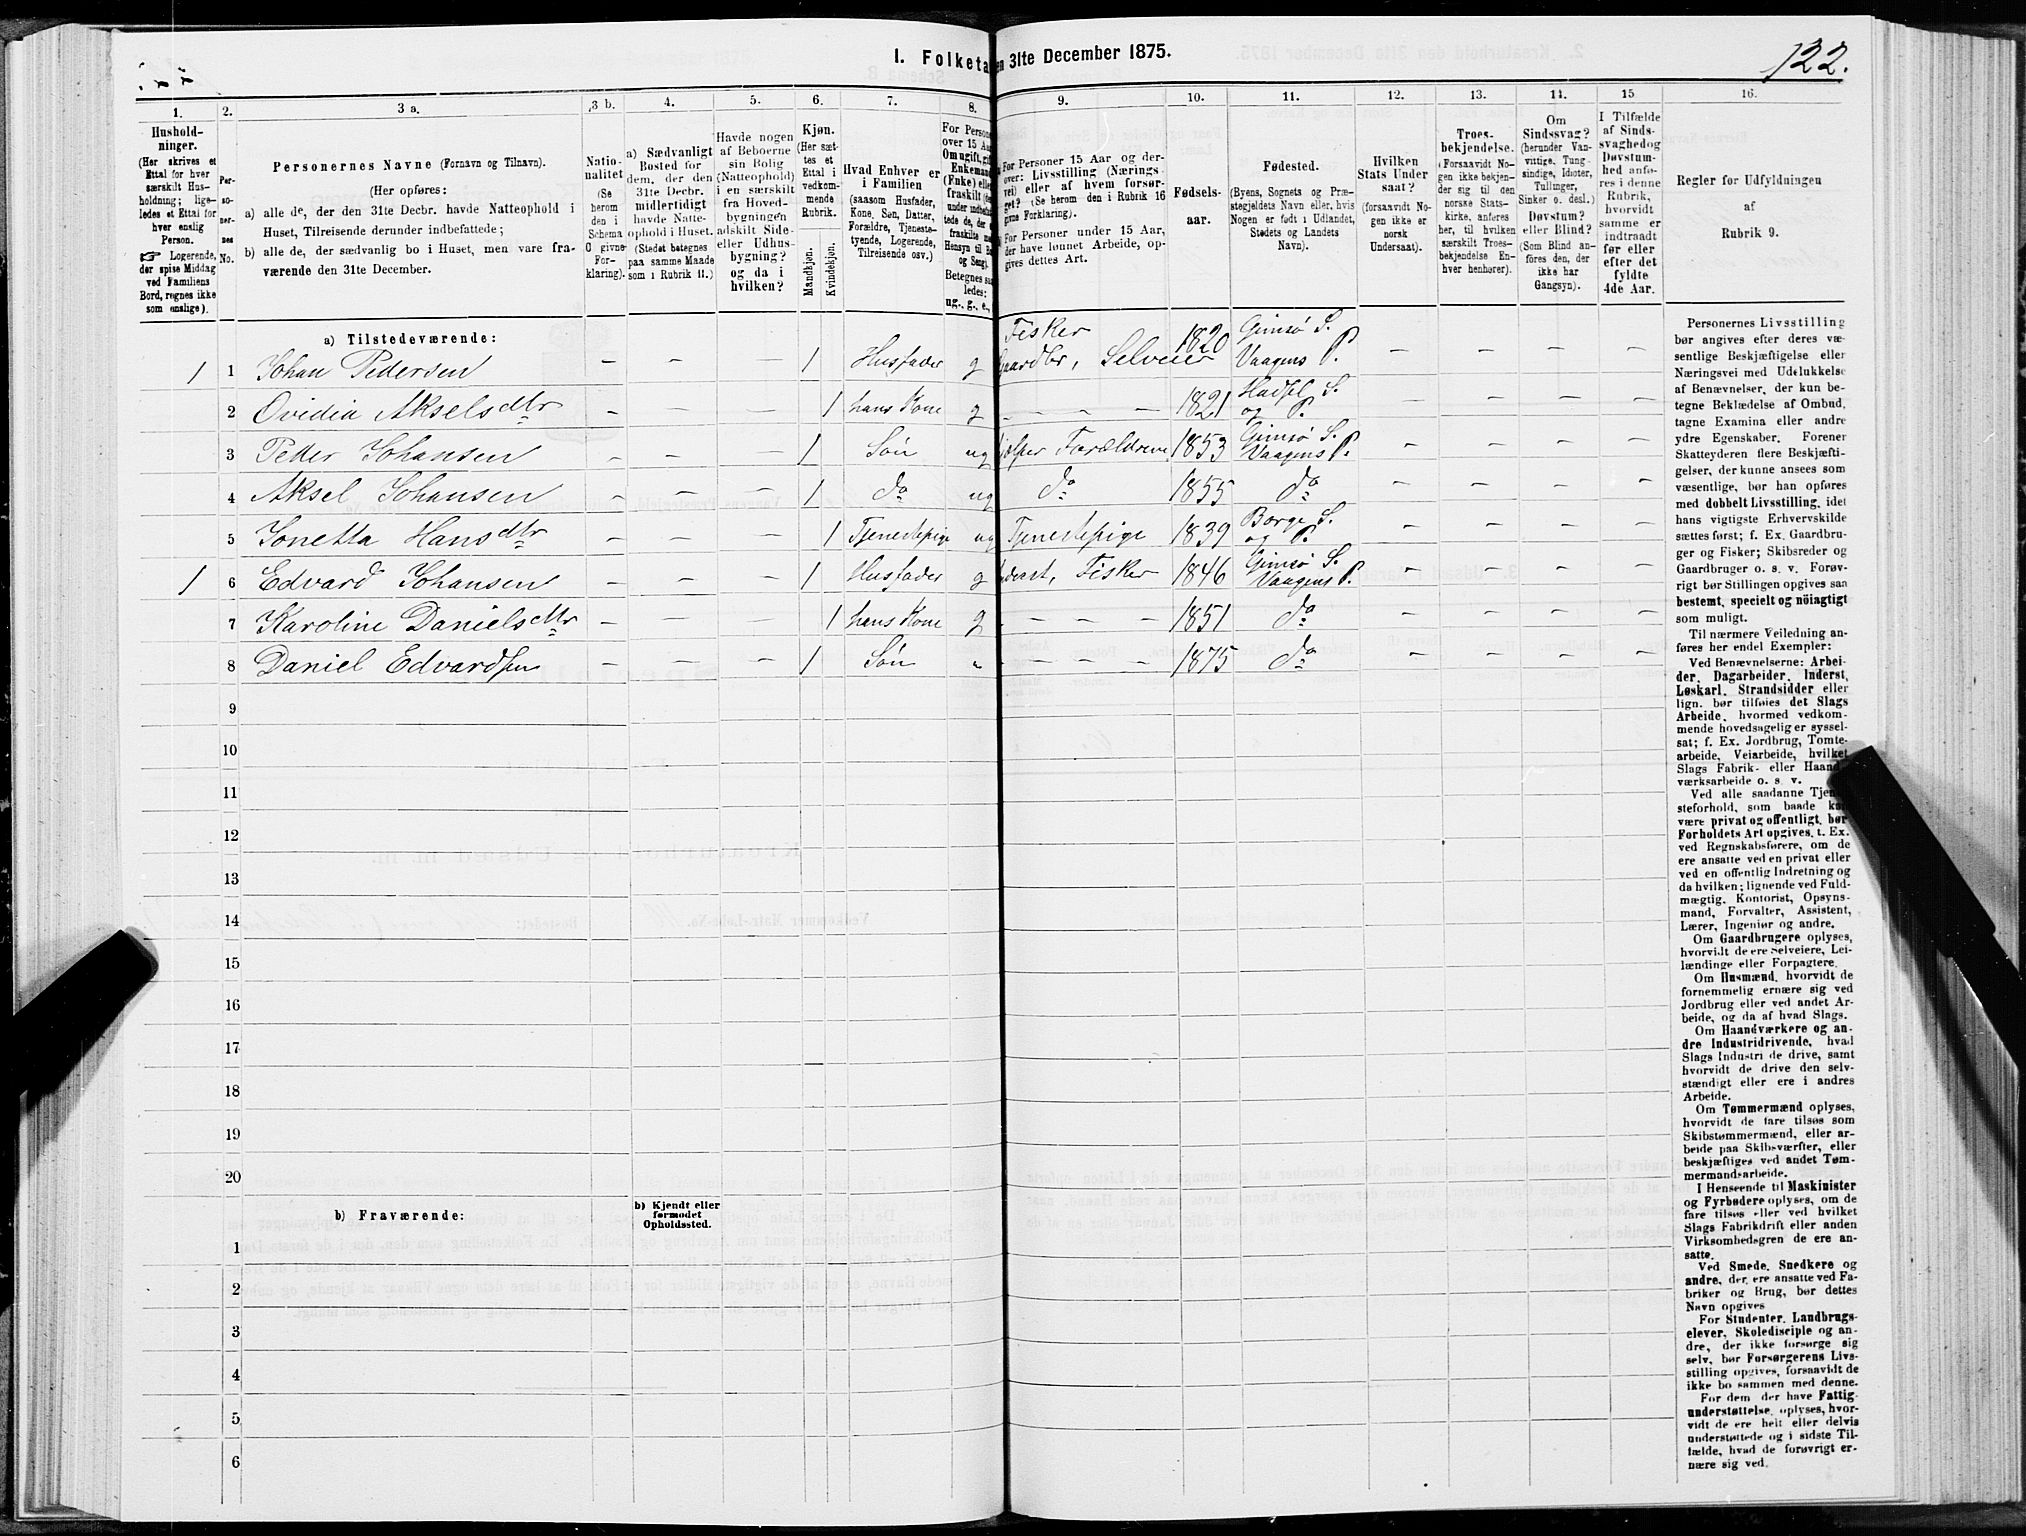 I. Folketæ
en 31te December 1875.
122.
1.
2.
3 a.
3 b.
4.
5.
6.
7.
8.
9.
10.
11.
12.
13.
14.
15
16.
Hushold-
ninger.
(Her skrives et
Ettal for hver
særskilt Hus-
holdning; lige-
ledes et Ettal for
hver enslig
Person.
☞ Logerende,
der spise Middag
ved Familiens
Bord, regnes ikke
som enslige).
Per-
so-
ner-
nes
No.
Personernes Navne (Fornavn og Tilnavn).
(Her opføres:
a) alle de, der den 31te Decbr. havde Natteophold i
Huset, Tilreisende derunder indbefattede;
b) alle de, der sædvanlig bo i Huset, men vare fra-
værende den 31te December.
Natio-
nalitet
(Se
herom
den i
Schema
C givne
For-
klaring).
a) Sædvanligt
Bosted for
dem, der den
31te Decbr.
midlertidigt
havde Natte-
ophold i Huset.
(Stedet betegnes
paa samme Maade
som i Rubrik 11.)
Havde nogen
af Beboerne
sin Bolig
(Natteophold)
i en særskilt
fra Hoved-
bygningen
adskilt Side-
eller Udhus-
bygning?
og da i
hvilken?
Kjøn.
(Her sæt-
tes et
Ettal i
vedkom-
mende
Rubrik.
Mandkjøn.
Kvindekjøn.
Hvad Enhver er
i Familien
(saasom Husfader,
Kone, Søn, Datter,
Forældre, Tjeneste-
tyende, Logerende,
Tilreisende osv.)
For Person
over 15 Aa
Om ugift, gif
Enkeman
(Enke) elle
fraskilt
under indbefat-
tede de, der
fraskilte me
Hensyn til Bo
og Seng).
Betegnes saa
ledes:
ug., g., e.,
For Personer 15 Aar og der-
over: Livsstilling (Nærings-
vei) eller af hvem forsør-
get? (Se herom den i Rubrik 16
givne Forklaring).
For Personer under 15 Aar,
der have lønnet Arbeide, op-
gives dettes Art.
Fødsels-
aar.
Fødested.
(Byens, Sognets og Præ-
stegjeldets Navn eller, hvis
Nogen er født i Udlandet,
Stedets og Landets
Navn).
Hvilken
Stats Under
saat?
(forsaavidt No-
gen ikke er
norsk
Undersaat).
Troes-
bekjendelse.
(Forsaavidt No-
gen ikke bekjen-
der sig til den
norske Stats-
kirke, anføres
her, til hvilken
særskilt Troes-
bekjendelse En-
hver henhører).
Om
Sindssvag?
(herunder Van-
vittige, Tung-
sindige, Idioter,
Tullinger,
Sinker o. desl.)
Døvstum?
eller Blind?
(Som Blind an-
føres den, der
ikke har
Gangsyn).
I Tilfælde
af Sinds-
svaghed og
Døvstum-
hed anfø-
res i denne
Rubrik,
hvorvidt
samme er
indtraadt
før eller
efter det
fyldte
4de Aar.
Regler for Udfyldningen
af
Rubrik 9.
a) Tilstedeværende:
1 1 Johan Pedersen – – – 1 Husfader g Fisker Gaardbr, Selveier 1820 Gimsø S. Vaagens P. – – – –
2 Ovidia Akselsdtr – – – 1 hans Kone g – – – – 1821 Hadsel S. og P. – – – –
3 Peder Johansen – – – 1 Søn ug hjelper Forældrene 1853 Gimsø S. Vaagens P. – – – –
4 Aksel Johansen – – – 1 do ug do 1855 do – – – –
5 Jonetta Hansdtr – – – 1 Tjenestepige ug Tjenestepige 1839 Borge S. og P. – – – –
1 6 Edvard Johansen – – – 1 Husfader g Inderst, Fisker 1846 Gimsø S. Vaagens P. – – – –
7 Karoline Danielsdtr – – – 1 hans Kone g – – – – 1851 do – – – –
8 Daniel Edvardsen – – – 1 Søn „ – – – – 1875 do – – – –
9
10
11
12
13
14
15
16
17
18
19
20
b) Fraværende:
b) Kjendt eller
formodet
Opholdssted.
1
2
3
4
5
6
Personernes Livsstilling
bør angives efter deres væ-
sentlige Beskjæftigelse eller
Næringsvei med Udelukkelse
af Benævnelser, der kun be-
tegne Beklædelse af Ombud,
tagne Examina eller andre
ydre Egenskaber. Forener
Skatteyderen flere Beskjæfti-
gelser, der kunne ansees som
væsentlige, bør han opføres
med dobbelt Livsstilling, idet
hans vigtigste Erhvervskilde
sættes først; f. Ex. Gaardbru-
ger og Fisker; Skibsreder og
Gaardbruger o. s. v. Forøv-
rigt bør Stillingen opgives saa
bestemt, specielt og nöiagtigt
som muligt.
Til nærmere Veiledning an-
føres her endel Exempler:
Ved Benævnelserne: Arbei-
der, Dagarbeider, Inderst,
Løskarl, Strandsidder eller
lign. bør tilføies det Slags
Arbeide, hvormed vedkom-
mende hovedsagelig er syssel-
sat; f. Ex. Jordbrug, Tomte-
arbeide, Veiarbeide, hvilket
Slags Fabrik- eller Haand-
værksarbeide o. s. v.
Ved alle saadanne Tjene-
steforhold, som baade kan
være privat og offentligt, bør
Forholdets Art opgives, t. Ex.
ved Regnskabsførere, om de
ere ansatte ved en privat eller
ved en offentlig Indretning og
da hvilken; lignende ved Fuld-
mægtig, Kontorist, Opsyns-
mand, Forvalter, Assistent,
Lærer, Ingeniør og andre.
Om Gaardbrugere oplyses,
hvorvidt de ere Selveiere, Lei-
lændinge eller Forpagtere.
Om Husmænd, hvorvidt de
fornemmelig ernære sig ved
Jordbrug eller ved andet Ar-
beide, og da af hvad Slags.
Om Haandværkere og an-
dre Industridrivende, hvad
Slags Industri de drive, samt
hvorvidt de drive den selv-
stændigt eller ere i andres
Arbeide.
Om Tømmermænd oplyses,
hvorvidt de fare tilsøs som
Skibstømmermænd, eller ar-
beide paa Skibsværfter, eller
beskjæftiges ved andet Tøm-
mermandsarbeide.
I Henseende til Maskinister
og Fyrbødere oplyses, om de
fare tilsøs eller ved hvilket
Slags Fabrikdrift eller anden
Virksomhedsgren de ere an-
satte.
Ved Smede, Snedkere og
andre, der ere ansatte ved Fa-
briker og Brug, bør dettes
Navn opgives
For Studenter, Landbrugs-
elever, Skoledisciple og an-
dre, der ikke forsørge sig
selv, bør Forsørgerens Livs-
stilling opgives, forsaavidt de
ikke bo sammen med denne.
For dem, der have Fattig-
understøttelse, oplyses, hvor-
vidt de ere helt eller delvis
understøttede og i sidste Til-
fælde, hvad de forøvrigt er-
nære sig ved.